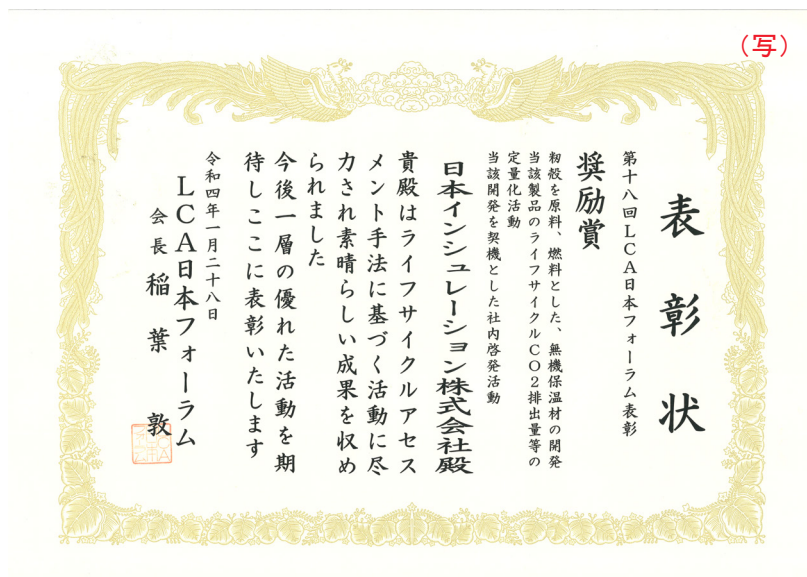 (写)
表彰状
第十八回LCA日本フォーラム表彰
奨励賞
籾殻を原料、燃料とした、無機保温材の開発
当該製品のライフサイクルCO2排出量等の
定量化活動
当該開発を契機とした社内啓発活動
日本インシュレーション株式会社殿
貴殿はライフサイクルアセス
メント手法に基づく活動に尽
力され素晴らしい成果を収め
られました
今後一層の優れた活動を期
待しここに表彰いたします
令和四年一月二十八日
LCA日本フォーラム
会長 稲葉 敦